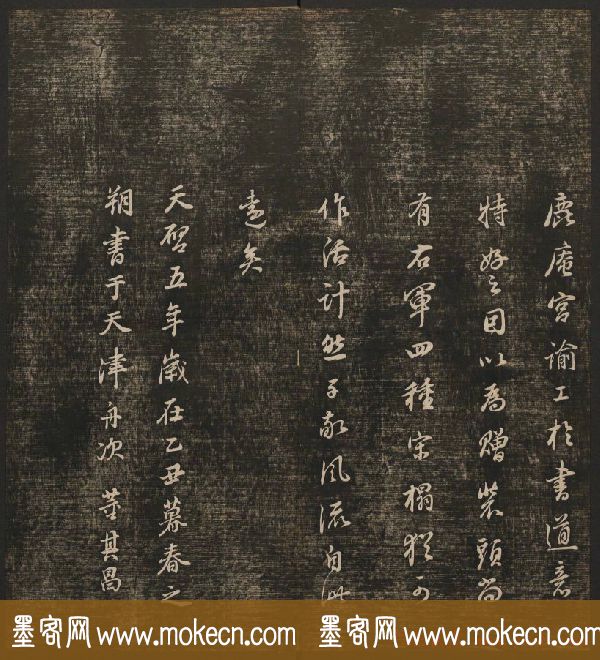 鹿庵宫谕工於書道意
特好之因以為贈裝頭尚
有右軍四種宋榻猶可
作活計然子敬風流自此
遠矣
天啓五年歲在乙丑暮春之
朔書于天津舟次 董其昌
墨客网 www.mokecn.com 墨客网 www.mokecn.com